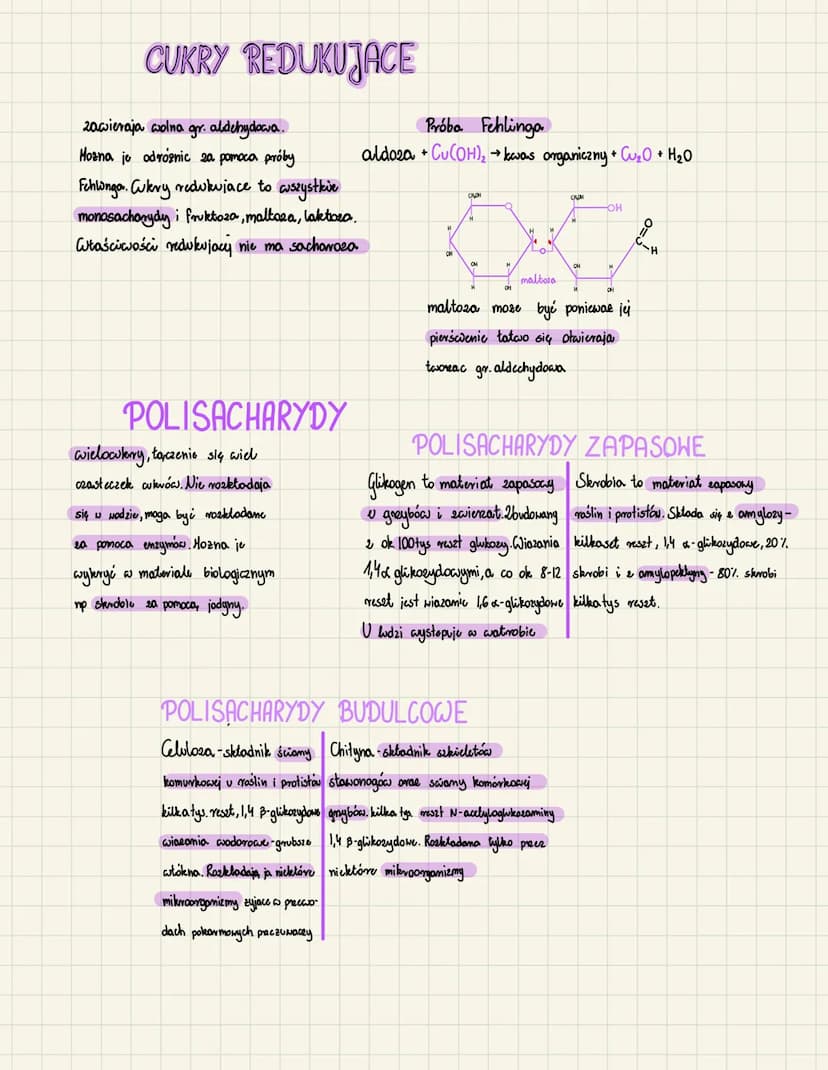 CUKRY REDUKUJĄCE
zawieraja wolna gr. aldehydowa.
Można je odróżnic za pomoca próby
Fehlinga. Cukry redukujace to wszystkie
monosacharydy i fruktoza, maltoza, laktoza.
Właściwości redukujacej nie ma sacharoza
Próba Fehlinga
aldoza + Cu(OH)₂ → kwas organiczny + Cu₂O + H₂O
CH₂OH
O
H
H
OH
OH
H
H
OH
H
H
O
CH₂OH
H
OH
OH
H
H
OH
O
C
H
maltoza
maltoza może być ponieważ jej
pierścienie łatwo się otwieraja
tworzac gr. aldechydowa
POLISACHARYDY
wielocukry, łączenie się wiel
czasteczek cukrów. Nie rozkładaja
się w wodzie, moga być rozkładane
za pomoca enzymów. Można je
wykryć w materiale biologicznym
np skrobie za pomoca jodyny.
POLISACHARYDY ZAPASOWE
Glikogen to materiał zapasowy
u grzybów i zwierzat. Zbudowany
z ok 100tys reszt glukozy. Wiazania
1,4 α glikozydowymi, a co ok 8-12
reszt jest wiazanie 1,6 α-glikozydowe
U ludzi wystepuje w watrobie
Skrobia to materiał zapasowy
roślin i protistów. Składa się z amylozy-
kilkaset reszt, 1,4 α-glikozydowe, 20%
skrobi i z amylopektyny - 80% skrobi
kilka tys reszt.
POLISACHARYDY BUDULCOWE
Celuloza - składnik ściany
komurkowej u roślin i protistów
kilka tys. reszt, 1,4 β-glikozydowe
wiazania wodorowe - grubsze
włókna. Rozkładaja ja niektóre
mikroorganizmy żyjace w przewo-
dach pokarmowych przeżuwaczy
Chityna - składnik szkieletów
stawonogów oraz ściany komórkowej
grzybów. kilka tys reszt N-acetyloglukozaminy
1,4 β-glikozydowe. Rozkładana tylko przez
niektóre mikroorganizmy